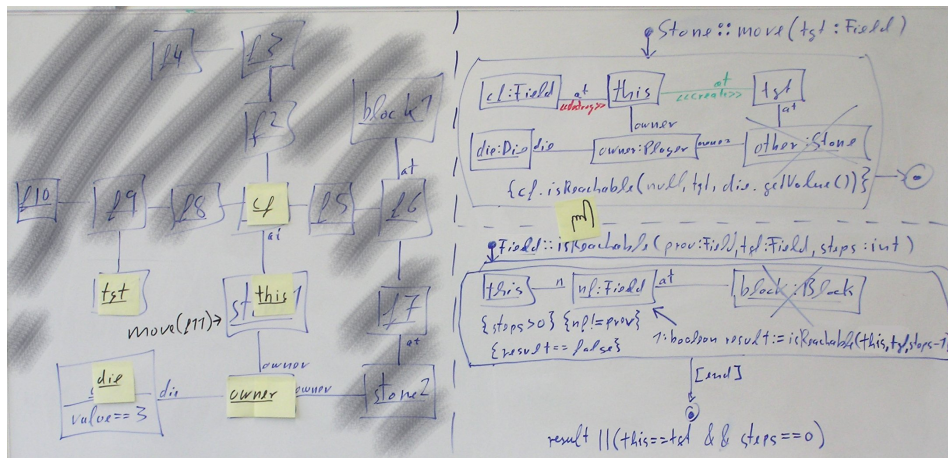 f4
f3
block1
f2
at
f10
f9
f8
cf
f5
f6
at
tgt
this
1
f7
move(f11)→
at
owner
die
value==3
die
owner
owner
stone2
Stone::move(tgt:Field)
cf:Field
at
<<destroy>>
this
at
<<create>>
tgt
owner
at
die:Die
die
owner:Player
owner
other:Stone
{cf.isReachable(null,tgt,die.getValue())}
nf
Field::isReachable(prev:Field,tgt:Field,steps:int)
this
n
nf:Field
at
block:Block
{steps>0} {nf!=prev}
{result==false}
1:boolean result:=isReachable(this,tgt,steps-1
[end]
result ||(this==tgt && steps==0)